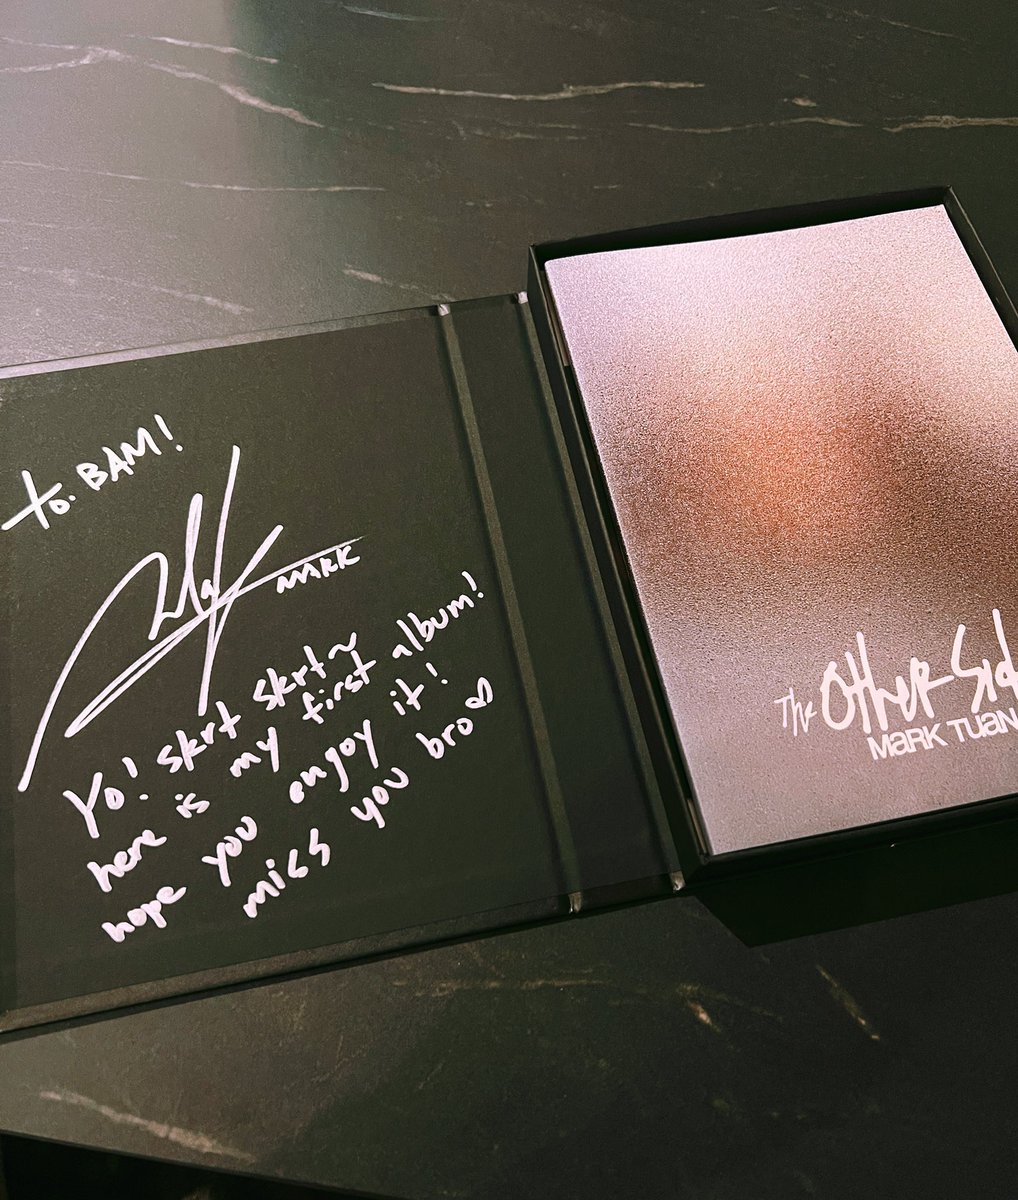 to. BAM!
MARK
Yo! skrt skrt~
here is my first album!
hope you enjoy it!
miss you bro♡
The Other Sid
MARK TUAN